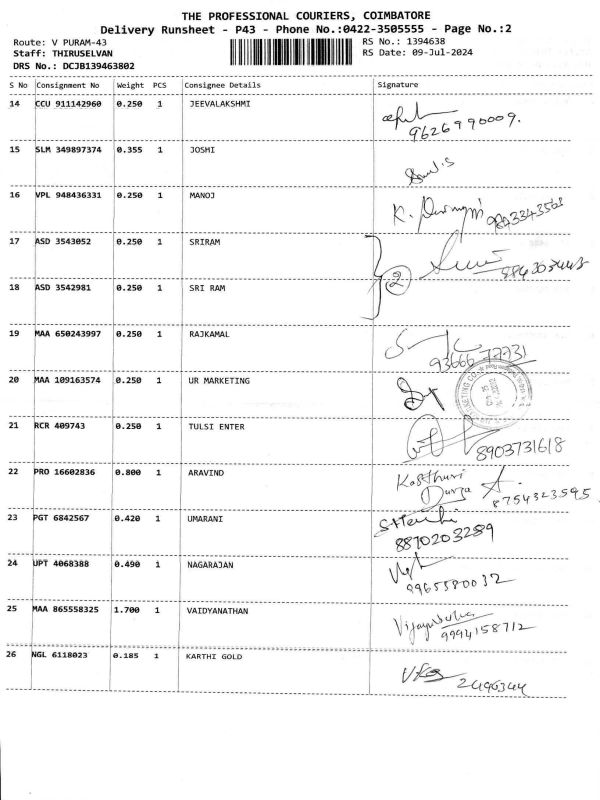 THE PROFESSIONAL COURIERS, COIMBATORE
Delivery Runsheet - P43 - Phone No.:0422-3505555 - Page No.:2
Route: V PURAM-43 RS No.: 1394638
Staff: THIRUSELVAN RS Date: 09-Jul-2024
DRS No.: DCJB139463802
S No Consignment No Weight PCS Consignee Details Signature
14 CCU 911142960 0.250 1 JEEVALAKSHMI
9626990009.
15 SLM 349897374 0.355 1 JOSHI
16 VPL 948436331 0.250 1 MANOJ
K.
17 ASD 3543052 0.250 1 SRIRAM
2
18 ASD 3542981 0.250 1 SRI RAM
19 MAA 650243997 0.250 1 RAJKAMAL
93666 77731
20 MAA 109163574 0.250 1 UR MARKETING
21 RCR 409743 0.250 1 TULSI ENTER
8903731618
22 PRO 16602836 0.800 1 ARAVIND
Kasthuri
Durga A.
8754323595
23 PGT 6842567 0.420 1 UMARANI
8870203289
24 UPT 4068388 0.490 1 NAGARAJAN
9965580032
25 MAA 865558325 1.700 1 VAIDYANATHAN
9994158712
26 NGL 6118023 0.185 1 KARTHI GOLD